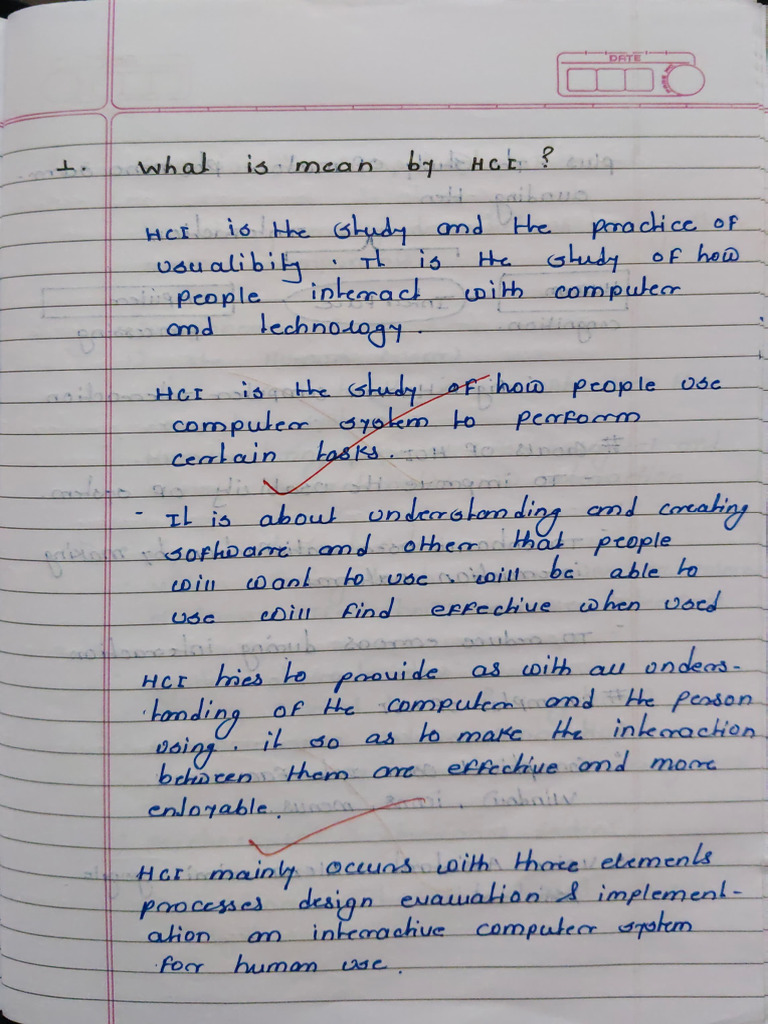 DATE
1. What is mean by HCI ?
HCI is the study and the practice of
usualibity. It is the study of how
people interact with computer
and technology.
HCI is the study of how people use
computer system to perform
certain tasks.
- It is about understanding and creating
software and other that people
will want to use. will be able to
use will find effective when used
HCI tries to provide as with au unders-
tanding of the computer and the person
using. it so as to make the interaction
between them are effective and more
enjoyable.
HCI mainly occurs with three elements
processes design evauation & implement-
ation an interactive computer system
for human use.